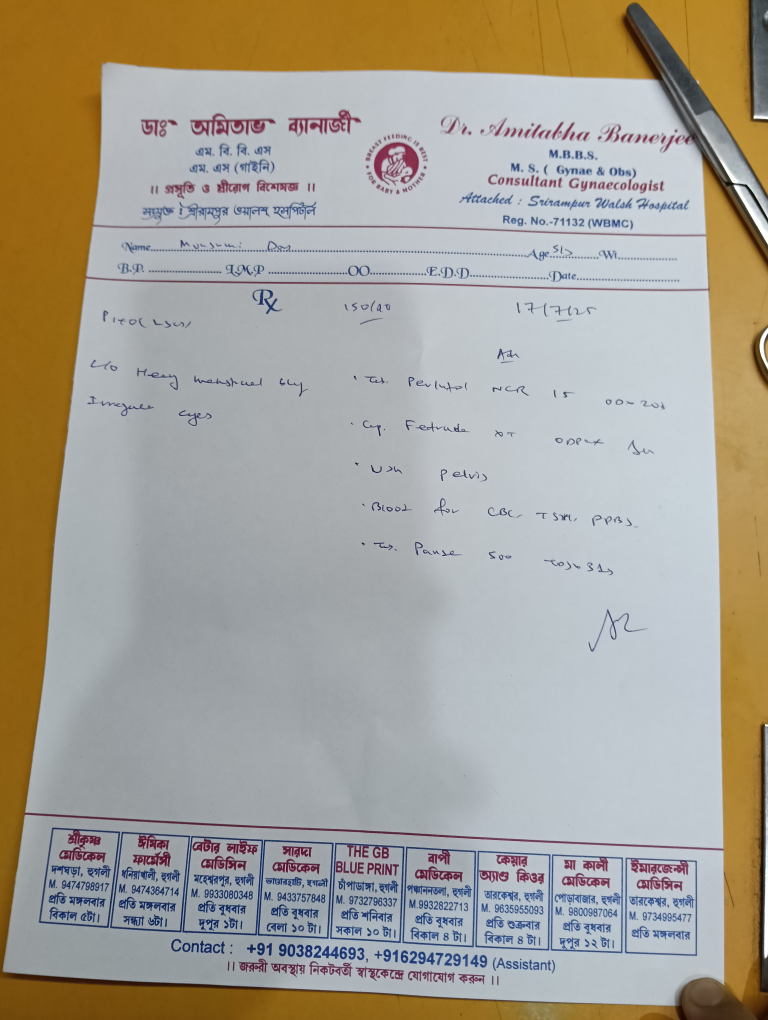 ডাঃ অমিতাভ ব্যানার্জী
এম. বি. বি. এস
এম. এস (গাইনি)
।। প্রসূতি ও স্ত্রীরোগ বিশেষজ্ঞ ।।
সংযুক্ত : শ্রীরামপুর ওয়ালশ হসপিটাল
BREAST FEEDING IS BEST
FOR BABY & MOTHER
Dr. Amitabha Banerjee
M.B.B.S.
M. S. ( Gynae & Obs)
Consultant Gynaecologist
Attached : Srirampur Walsh Hospital
Reg. No.-71132 (WBMC)
Name Age Wt.
B.P. L.M.P OO E.D.D. Date
Rx
17/7/25
Heavy menstrual
Irregular
Adv
NCR 15
Cap. XT
pelvis
Blood for CBC, TSH, PPBS
Tab. Pause 500
শ্রীকৃষ্ণ মেডিকেল
দশঘড়া, হুগলী
M. 9474798917
প্রতি মঙ্গলবার
বিকাল ৫টা।
ঈশিকা ফার্মেসী
ধনিয়াখালী, হুগলী
M. 9474364714
প্রতি মঙ্গলবার
সন্ধ্যা ৬টা।
বেটার লাইফ মেডিসিন
মহেশ্বরপুর, হুগলী
M. 9933080348
প্রতি বুধবার
দুপুর ১টা।
সারদা মেডিকেল
হুগলী
M. 9433757848
প্রতি বুধবার
বেলা ১০ টা।
THE GB
BLUE PRINT
চাঁপাডাঙ্গা, হুগলী
M. 9732796337
প্রতি শনিবার
সকাল ১০ টা।
বাপী মেডিকেল
পঞ্চাননতলা, হুগলী
M.9932822713
প্রতি বুধবার
বিকাল ৪ টা।
কেয়ার অ্যাণ্ড কিওর
তারকেশ্বর, হুগলী
M. 9635955093
প্রতি শুক্রবার
বিকাল ৪ টা।
মা কালী মেডিকেল
পোড়াবাজার, হুগলী
M. 9800987064
প্রতি বুধবার
দুপুর ১২ টা।
ইমারজেন্সী মেডিসিন
তারকেশ্বর, হুগলী
M. 9734995477
প্রতি মঙ্গলবার
Contact : +91 9038244693, +916294729149 (Assistant)
।। জরুরী অবস্থায় নিকটবর্তী স্বাস্থ্যকেন্দ্রে যোগাযোগ করুন ।।